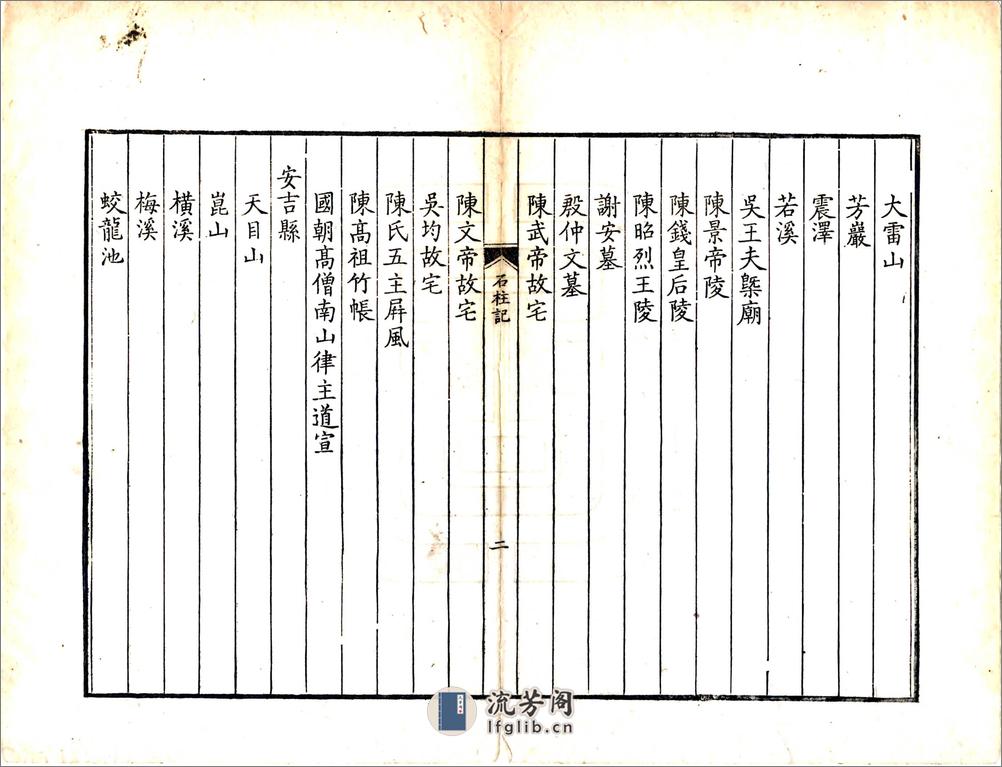 大雷山
芳巖
震澤
若溪
吳王夫槩廟
陳景帝陵
陳錢皇后陵
陳昭烈王陵
謝安墓
殷仲文墓
陳武帝故宅
石柱記
二
陳文帝故宅
吳均故宅
陳氏五主屛風
陳髙祖竹帳
國朝髙僧南山律主道宣
安吉縣
天目山
崑山
橫溪
梅溪
蛟龍池
流芳阁
lfglib.cn